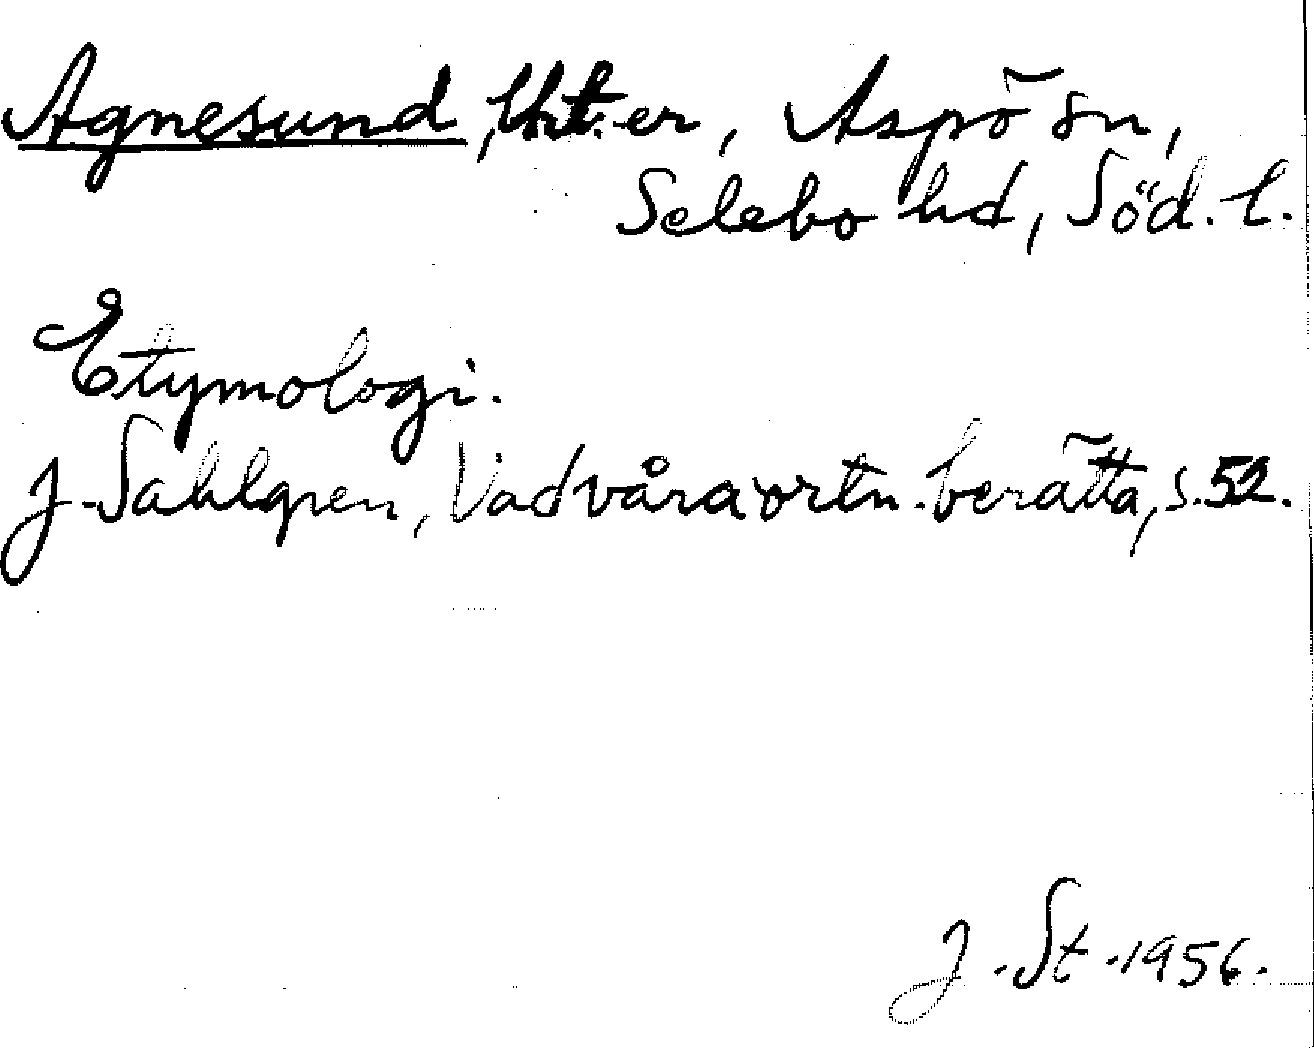 Agnesund, Utt.er, Aspö sn,
Selebo hd, Söd. l.
Etymologi.
J. Sahlgren, Vad våra ortn. berätta, s. 52.
J. St. 1956.